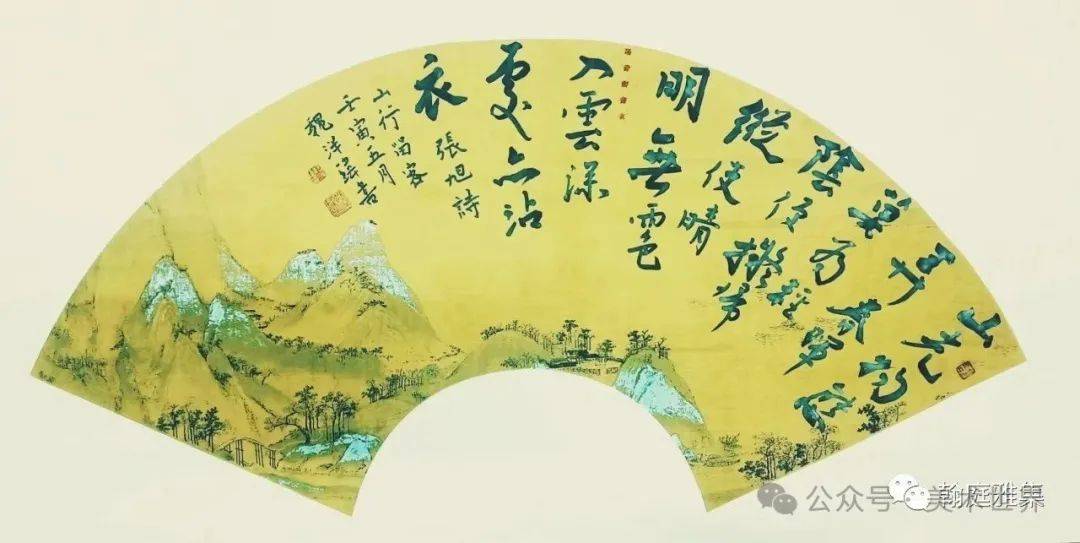 山光物態
弄春暉
莫為輕
陰便擬歸
縱使晴
明無雨色
入雲深
處亦沾
衣
張旭詩
山行留客
壬寅五月
魏洋
書
公众号·美术世界
翰庭雅集